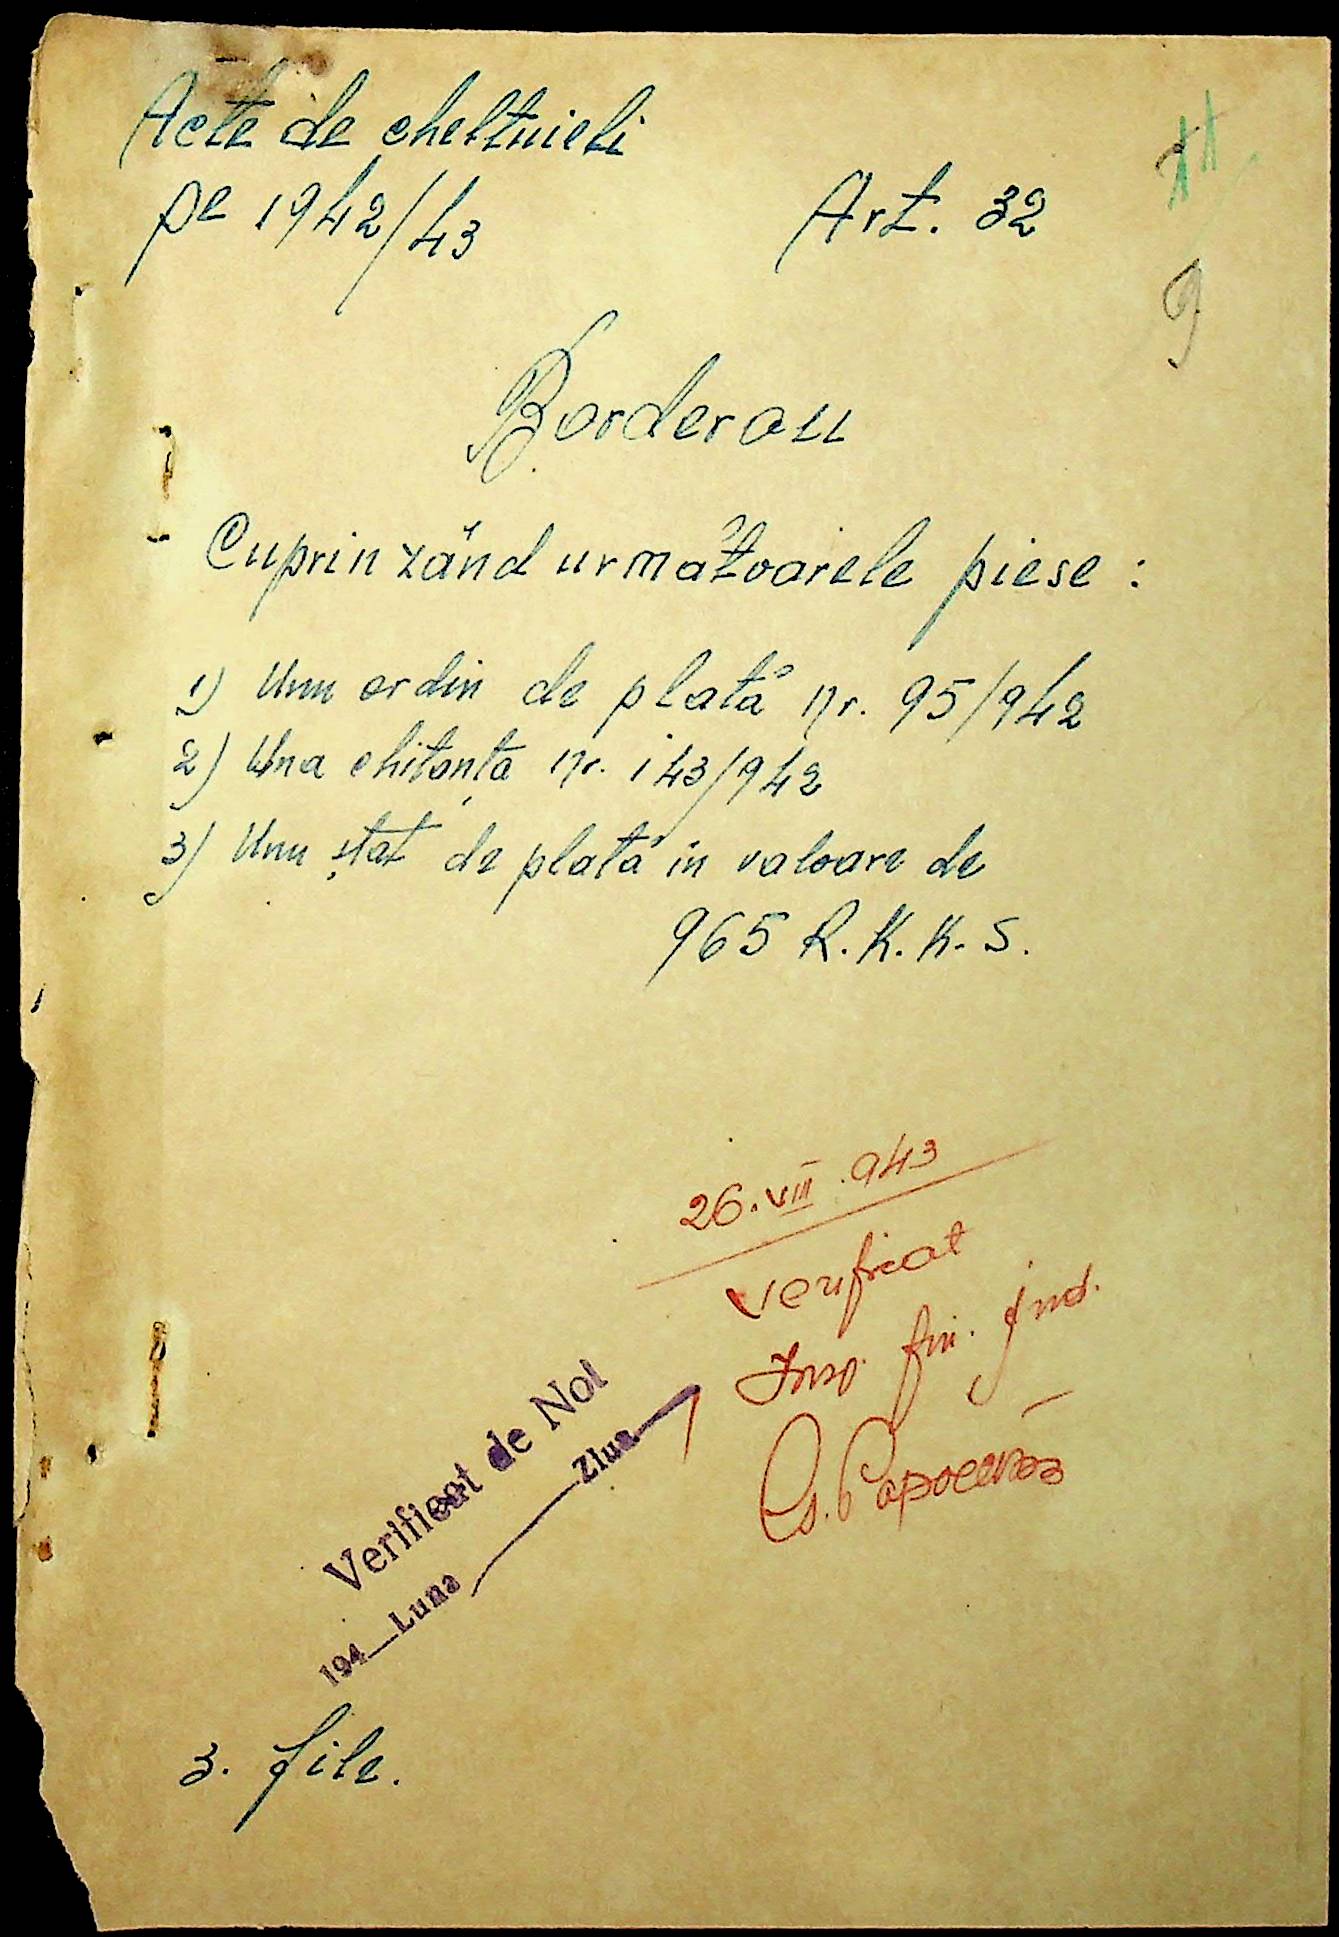 Acte de cheltuieli
pe 1942/43
Art. 32
9
Borderou
Cuprinzând următoarele piese :
1) Unu ordin de plată nr. 95/942
2) Una chitanța nr. 143/942
3) Unu ștat de plată in valoare de
965 R.K.K.S.
26.VIII.943
Verificat
Insp. fin. Jud.
Verificat de Noi
194_ Luna ___ Ziua
3. file.